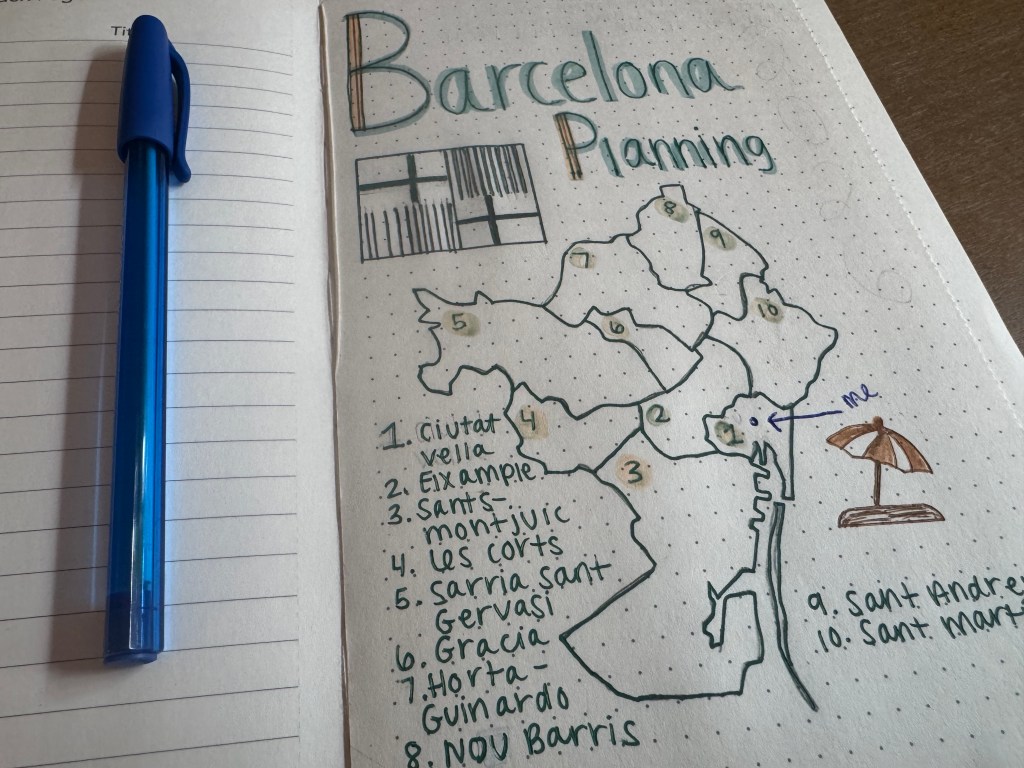 Barcelona
Planning
8
9
7
10
5
6
me
4
2
1
3
1. Ciutat
vella
2. Eixample
3. Sants-
montjuic
4. Les corts
5. Sarria Sant
Gervasi
6. Gracia
7. Horta-
Guinardo
8. Nov Barris
9. Sant Andre
10. Sant mart